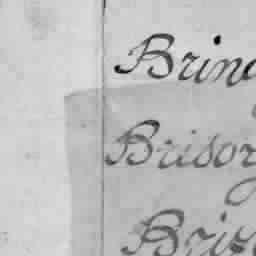 Brin
Brisor
Briz